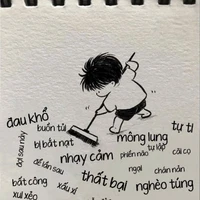 đau khổ
buồn tủi
bị bắt nạt
mông lung
tự ti
đợi sau này
nhạy cảm
phiền não
tự lập
cãi cọ
để lần sau
ngại
chán nản
bất công
xấu xí
thất bại
nghèo túng
xui xẻo